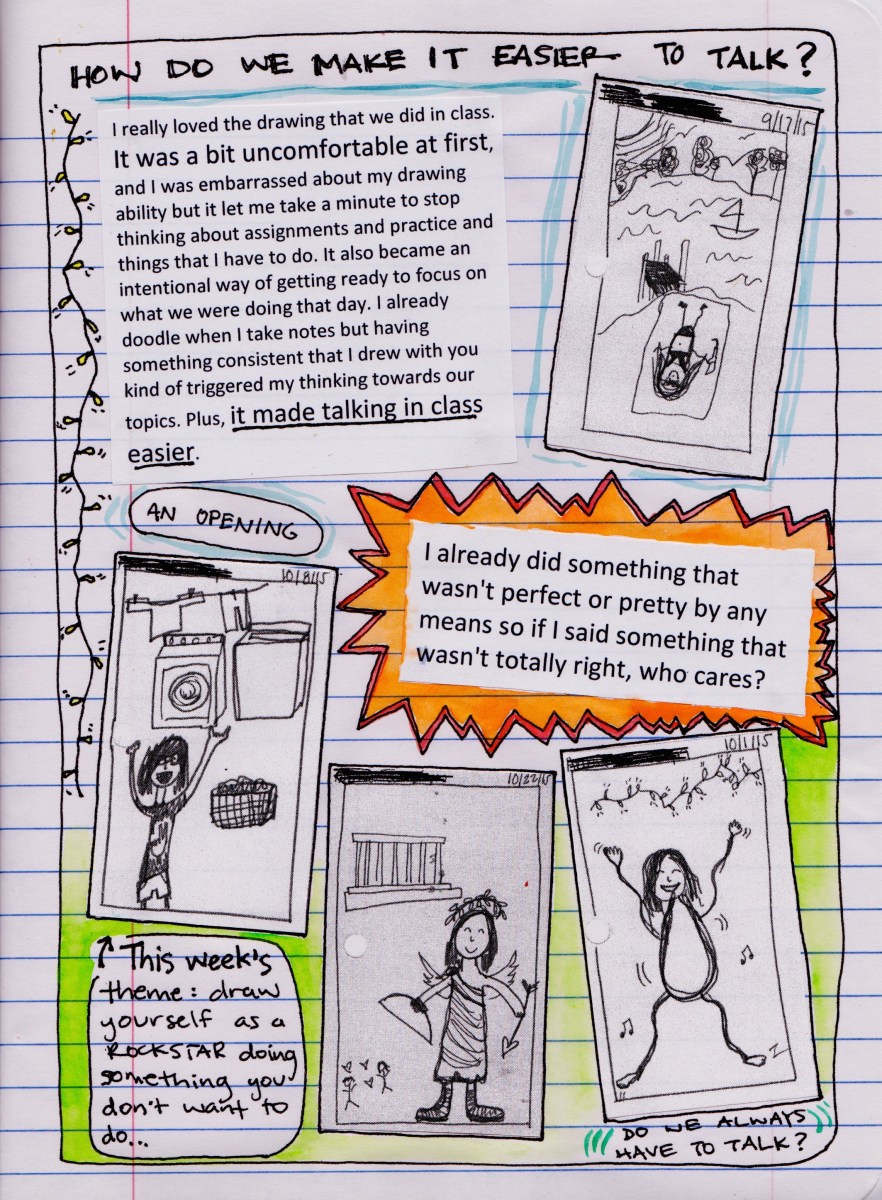 HOW DO WE MAKE IT EASIER TO TALK?
I really loved the drawing that we did in class.
It was a bit uncomfortable at first,
and I was embarrassed about my drawing
ability but it let me take a minute to stop
thinking about assignments and practice and
things that I have to do. It also became an
intentional way of getting ready to focus on
what we were doing that day. I already
doodle when I take notes but having
something consistent that I drew with you
kind of triggered my thinking towards our
topics. Plus, it made talking in class
easier.
9/17/15
AN OPENING
I already did something that
wasn't perfect or pretty by any
means so if I said something that
wasn't totally right, who cares?
10/8/15
10/22/15
10/1/15
↑ This week's
theme: draw
yourself as a
ROCKSTAR doing
something you
don't want to
do...
DO WE ALWAYS
HAVE TO TALK?